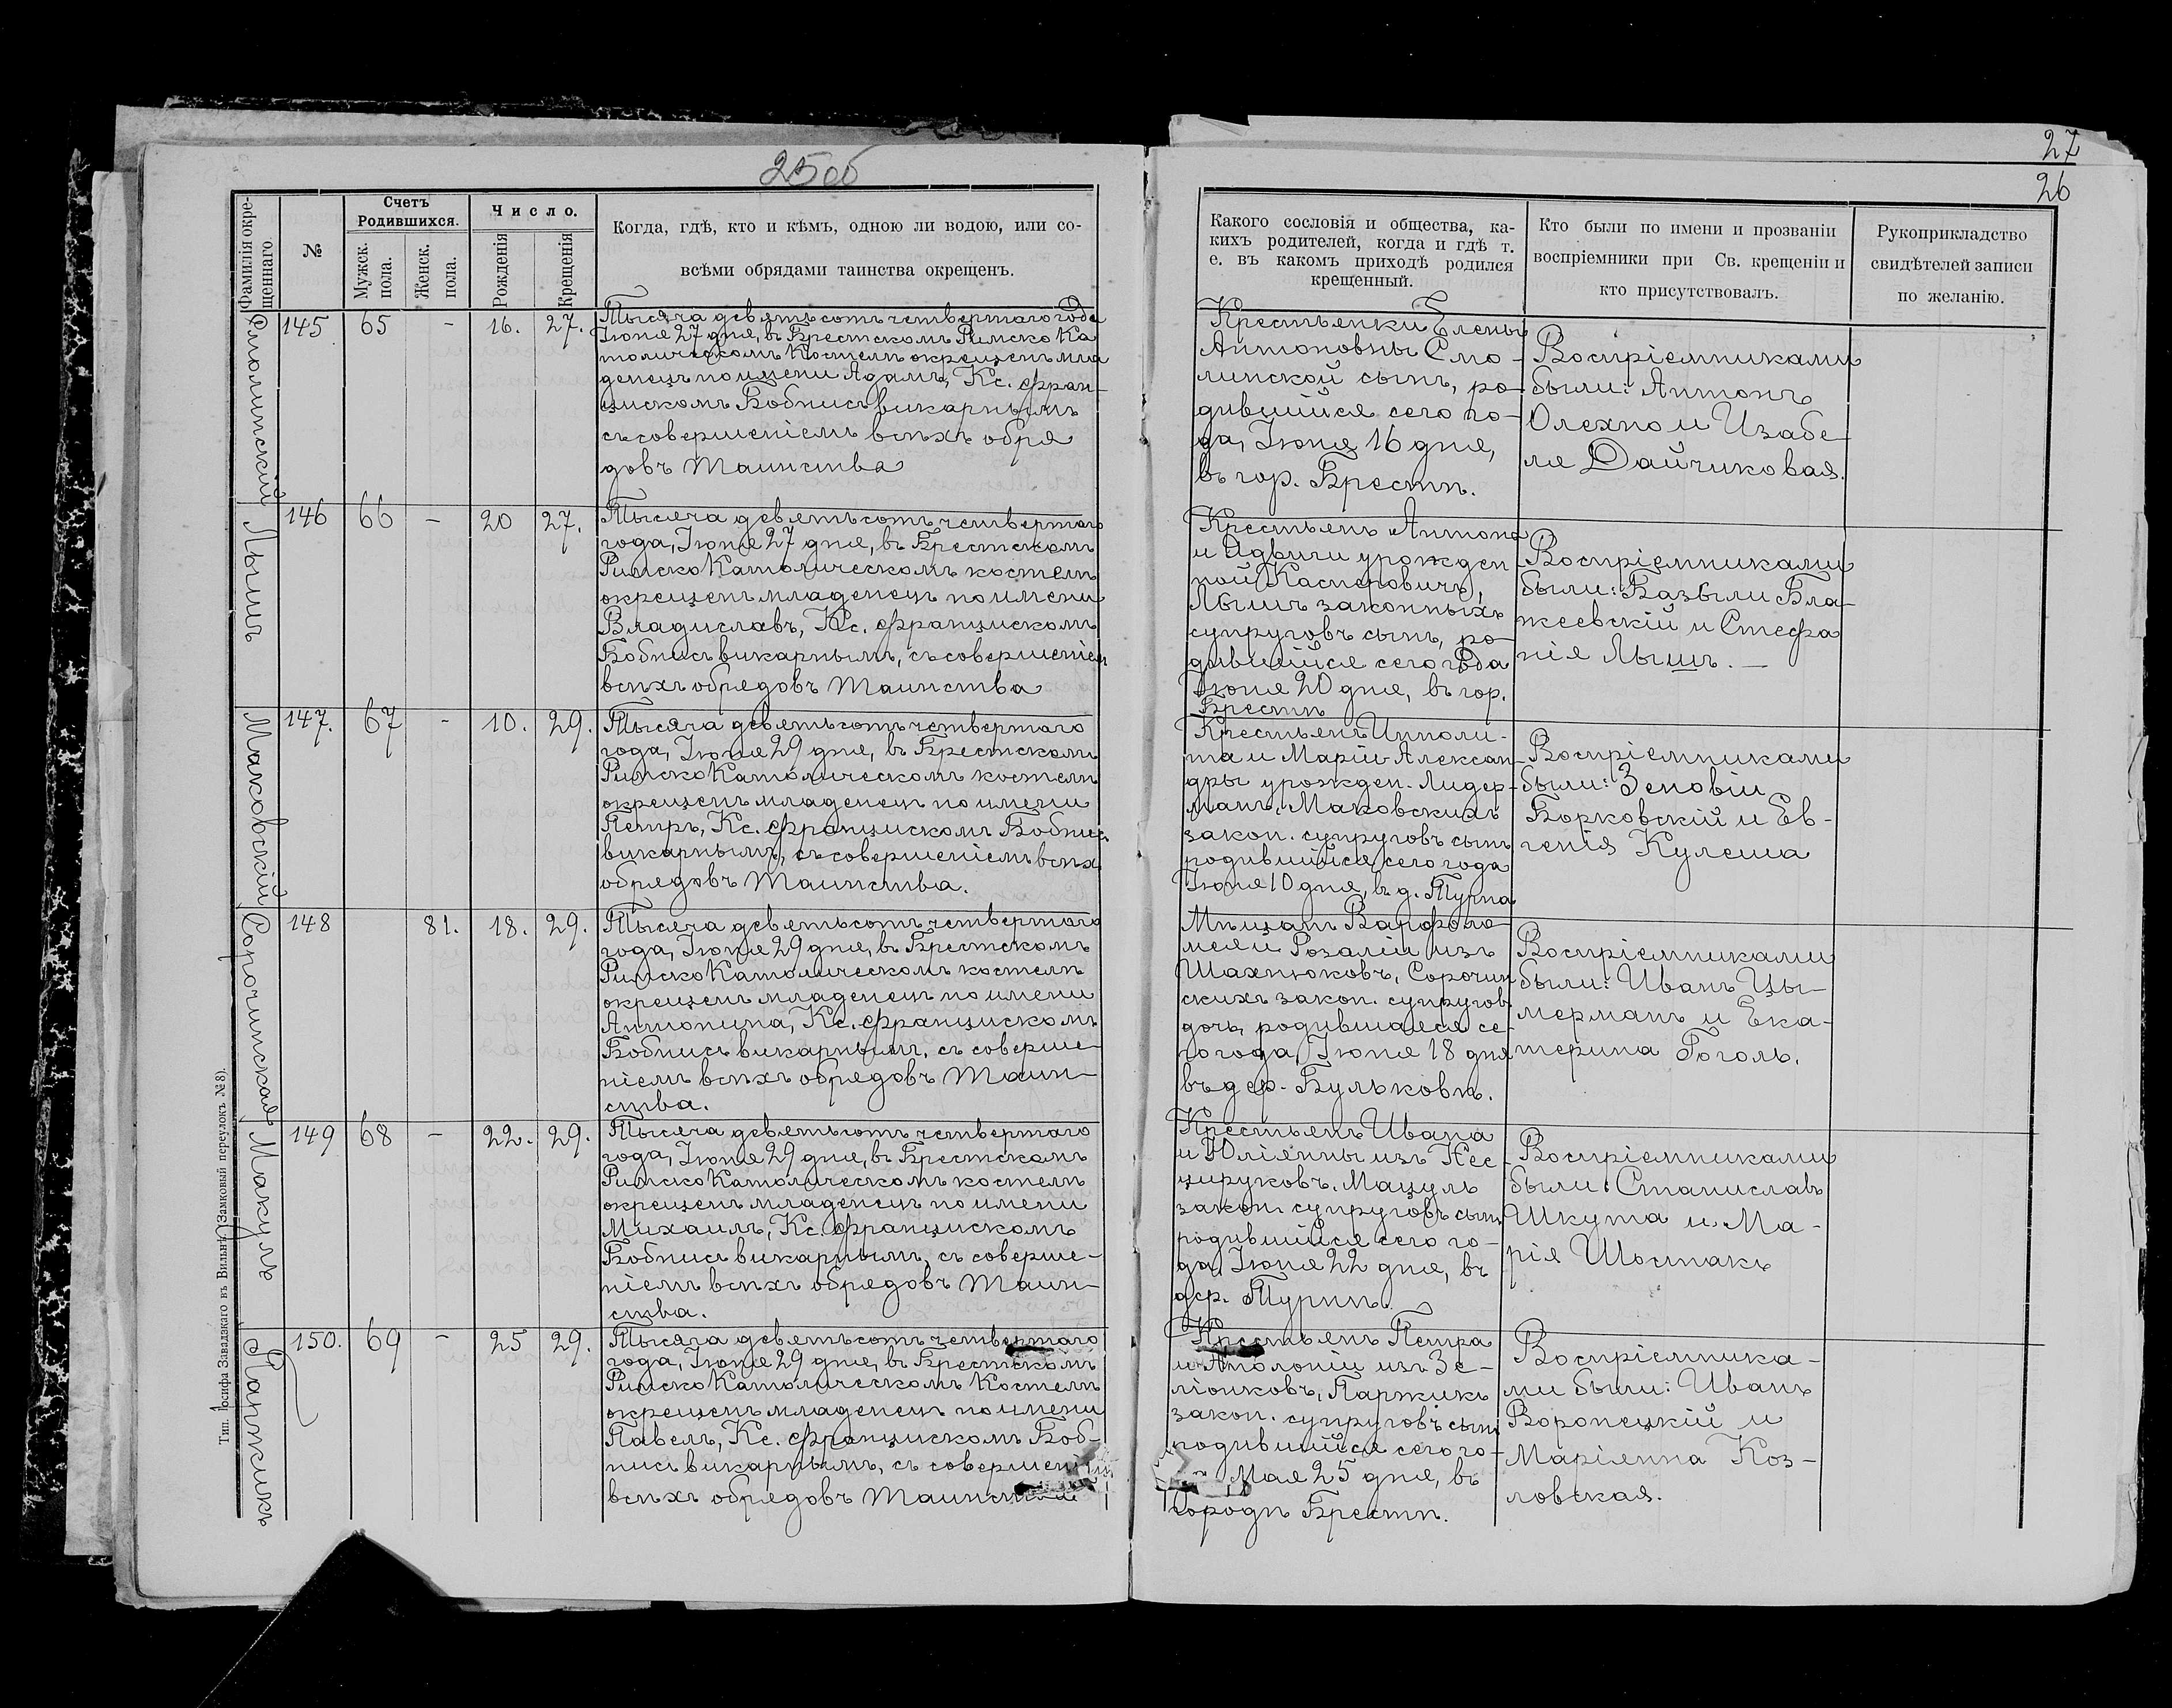 25об
27
26
Фамилія окре-
щеннаго.
№
Счетъ
Родившихся.
Мужск.
пола.
Женск.
пола.
Число.
Рожденія
Крещенія
Когда, гдѣ, кто и кѣмъ, одною ли водою, или со-
всѣми обрядами таинства окрещенъ.
Какого сословія и общества, ка-
кихъ родителей, когда и гдѣ т.
е. въ какомъ приходѣ родился
крещенный.
Кто были по имени и прозваніи
воспріемники при Св. крещеніи и
кто присутствовалъ.
Рукоприкладство
свидѣтелей записи
по желанію.
Смолинский
145 65 - 16. 27.
Тысяча девятьсотъ четвертаго года
Іюня 27 дня, въ Брестскомъ Римско Ка
толическомъ Костелѣ окрещенъ мла
денецъ по имени Адамъ, Кс. Фран-
цискомъ Бобнисъ викарнымъ
съ совершеніемъ всѣхъ обря
довъ Таинства
Крестьянки Елены
Антоновны Смо-
линской сынъ, ро-
дившійся сего го-
да, Іюня 16 дня,
въ гор. Брестѣ.
Воспріемниками
были: Антонъ
Олехно и Изабе
ля Дайчиковая.
Лышъ
146 66 - 20 27.
Тысяча девятьсотъ четвертаго
года, Іюня 27 дня, въ Брестскомъ
Римско Католическомъ костелѣ
окрещенъ младенецъ по имени
Владиславъ, Кс. Францискомъ
Бобнисъ викарнымъ, съ совершеніемъ
всѣхъ обрядовъ Таинства
Крестьянъ Антона
и Ядвиги урожден
ной Касперовичъ,
Лышъ законныхъ
супруговъ сынъ, ро-
дившійся сего года
Іюня 20 дня, въ гор.
Брестѣ
Воспріемниками
были: Базыли Бла-
жеевскій и Стефа
нія Лышъ. —
Маковскій
147. 67 - 10. 29.
Тысяча девятьсотъ четвертаго
года, Іюня 29 дня, въ Брестскомъ
Римско Католическомъ костелѣ
окрещенъ младенецъ по имени
Петръ, Кс. Францискомъ Бобнисъ
викарнымъ, съ совершеніемъ всѣхъ
обрядовъ Таинства.
Крестьянъ Ипполи-
та и Маріи-Алексан
дры урожден. Лидер-
манъ, Маковскихъ
закон. супруговъ сынъ
родившійся сего года
Іюня 10 дня, въ д. Турна
Воспріемниками
были: Зеновій
Борковскій и Ев-
генія Кулеша
Сорочинская
148 81. 18. 29.
Тысяча девятьсотъ четвертаго
года, Іюня 29 дня, въ Брестскомъ
Римско Католическомъ костелѣ
окрещенъ младенецъ по имени
Антонина, Кс. Францискомъ
Бобнисъ викарнымъ, съ соверше-
ніемъ всѣхъ обрядовъ Таин-
ства.
Мѣщанъ Варфоло
мея и Розаліи изъ
Шахнюковъ, Сорочин
скихъ закон. супруговъ
дочь, родившаяся се-
го года, Іюня 18 дня
въ дер. Бульковѣ.
Воспріемниками
были: Иванъ Цы-
мерманъ и Ека-
терина Гоголь.
Макуль
149 68 - 22. 29.
Тысяча девятьсотъ четвертаго
года, Іюня 29 дня, въ Брестскомъ
Римско Католическомъ костелѣ
окрещенъ младенецъ по имени
Михаилъ, Кс. Францискомъ
Бобнисъ викарнымъ, съ соверше-
ніемъ всѣхъ обрядовъ Таин-
ства.
Крестьянъ Ивана
и Юліянны изъ Нес
цируковъ, Мацуль
закон. супруговъ сынъ
родившійся сего го-
да, Іюня 22 дня, въ
дер. Турнѣ.
Воспріемниками
были: Станиславъ
Шкута и Ма-
рія Шостакъ
Паржикъ
150. 69 - 25 29.
Тысяча девятьсотъ четвертаго
года, Іюня 29 дня, въ Брестскомъ
Римско Католическомъ Костелѣ
окрещенъ младенецъ по имени
Павелъ, Кс. Францискомъ Боб-
нисъ викарнымъ, съ совершен
всѣхъ обрядовъ Таинства
Крестьянъ Петра
и Аполоніи изъ Зе-
ліонковъ, Паржикъ
закон. супруговъ сынъ
родившійся сего го-
Мая 25 дня, въ
городѣ Брестѣ.
Воспріемника-
ми были: Иванъ
Воронецкій и
Маріянна Коз-
ловская.
Тип. Іосифа Завадзкаго въ Вильнѣ (Замковый переулокъ №8).